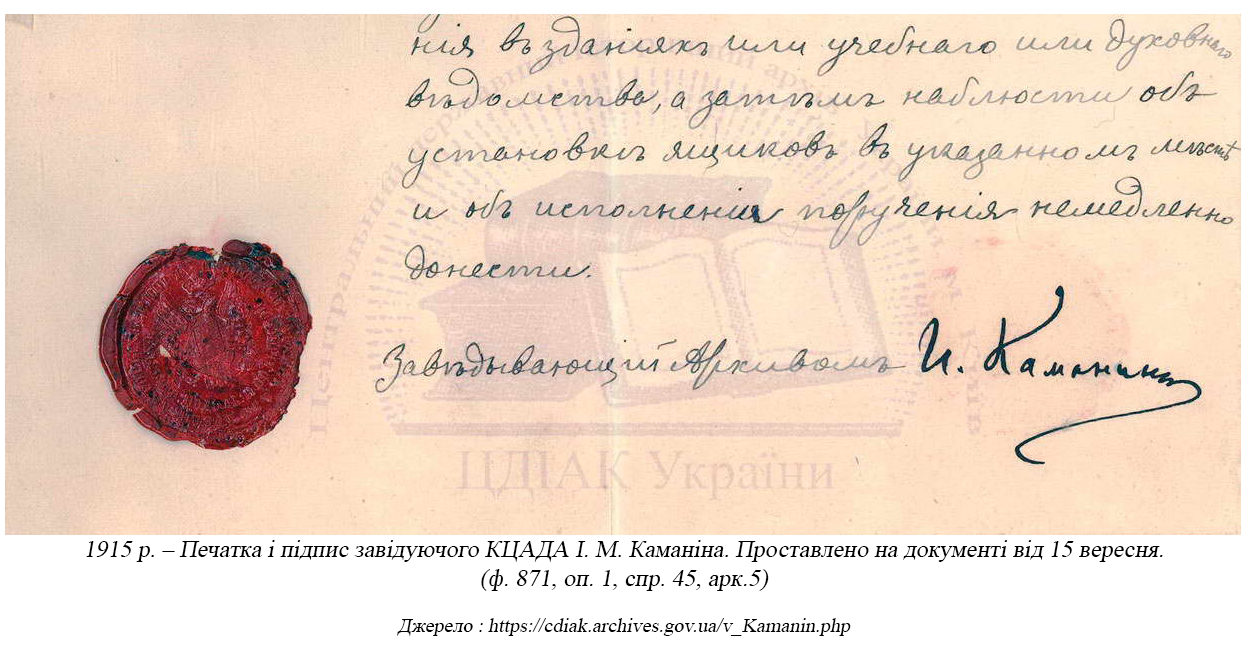 нія въ зданіяхъ или учебнаго или духовнаго
вѣдомства, а затѣмъ наблюсти объ
установкѣ ящиковъ въ указанномъ мѣстѣ
и объ исполненіи порученія немедленно
донести.
Завѣдывающій Архивомъ И. Каманинъ
ЦДІАК України
1915 р. – Печатка і підпис завідуючого КЦАДА І. М. Каманіна. Проставлено на документі від 15 вересня.
(ф. 871, оп. 1, спр. 45, арк.5)
Джерело : https://cdiak.archives.gov.ua/v_Kamanin.php